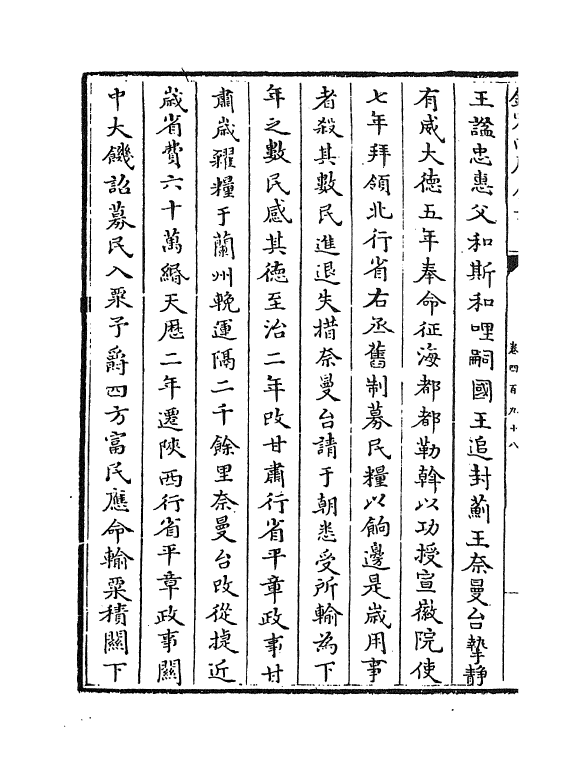 卷四百九十八
王諡忠惠父和斯和哩嗣國王追封薊王奈曼台摯靜
有威大德五年奉命征海都都勒斡以功授宣徽院使
七年拜嶺北行省右丞舊制募民糧以餉邊是歲用事
者殺其數民進退失措奈曼台請于朝悉受所輸為下
年之數民感其德至治二年改甘肅行省平章政事甘
肅歲糴糧于蘭州輓運隔二千餘里奈曼台改從捷近
歲省費六十萬緡天歴二年遷陜西行省平章政事關
中大饑詔募民入粟予爵四方富民應命輸粟積關下